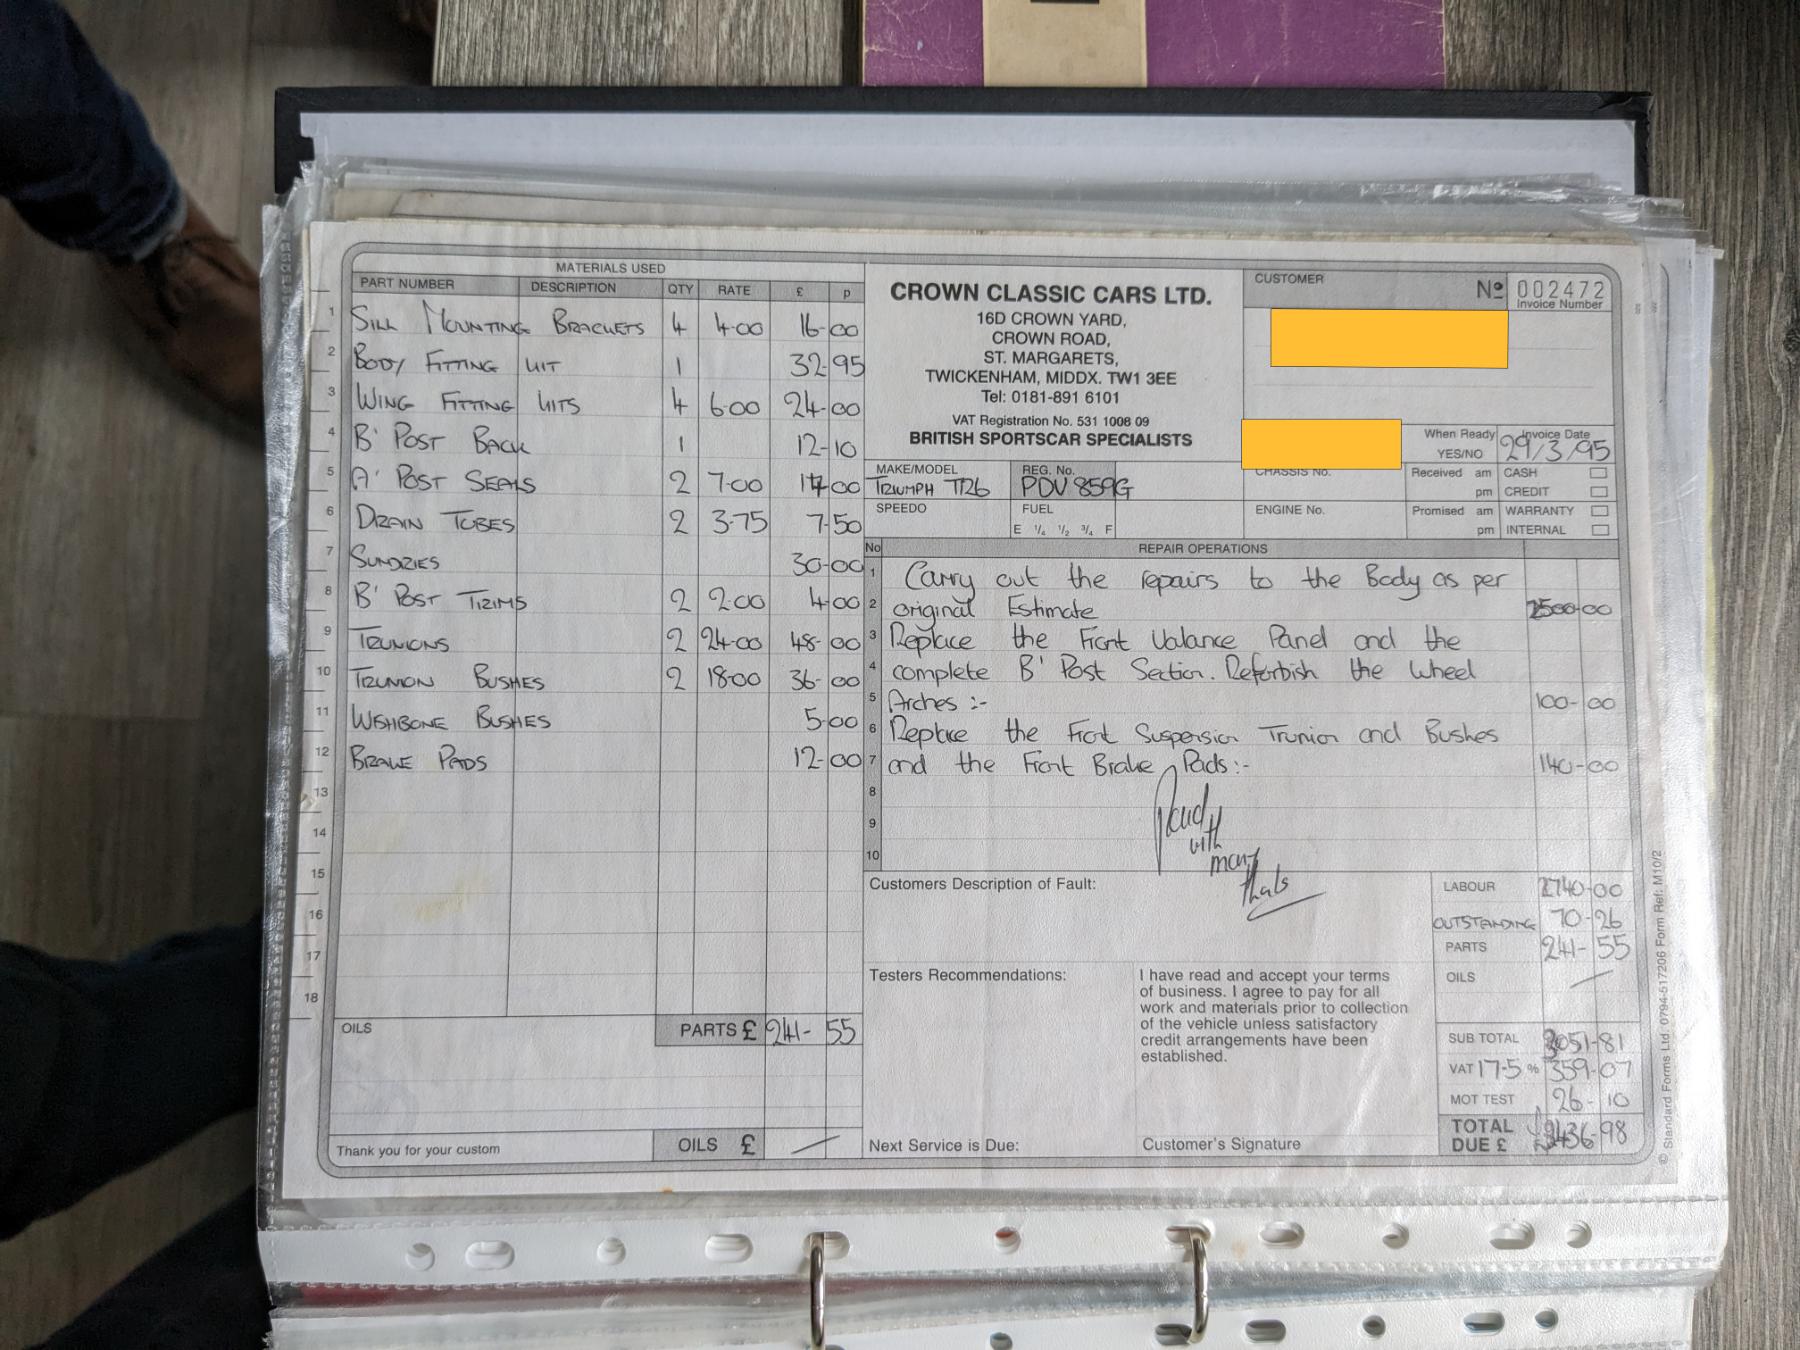 MATERIALS USED
PART NUMBER DESCRIPTION QTY RATE £ p
1 SILL MOUNTING BRACKETS 4 4-00 16-00
2 BODY FITTING KIT 1 32-95
3 WING FITTING KITS 4 6-00 24-00
4 B' POST BACK 1 12-10
5 A' POST SEALS 2 7-00 14-00
6 DRAIN TUBES 2 3-75 7-50
7 SUNDRIES 30-00
8 B' POST TRIMS 2 2-00 4-00
9 TRUNIONS 2 24-00 48-00
10 TRUNION BUSHES 2 18-00 36-00
11 WISHBONE BUSHES 5-00
12 BRAKE PADS 12-00
13
14
15
16
17
18
OILS PARTS £ 241-55
Thank you for your custom OILS £ —
CROWN CLASSIC CARS LTD.
16D CROWN YARD,
CROWN ROAD,
ST. MARGARETS,
TWICKENHAM, MIDDX. TW1 3EE
Tel: 0181-891 6101
VAT Registration No. 531 1008 09
BRITISH SPORTSCAR SPECIALISTS
CUSTOMER Nº 002472
Invoice Number
When Ready Invoice Date
YES/NO 29/3/95
MAKE/MODEL REG. No. CHASSIS No. Received am CASH
TRIUMPH TR6 PDV 859G pm CREDIT
SPEEDO FUEL ENGINE No. Promised am WARRANTY
E ¼ ½ ¾ F pm INTERNAL
No REPAIR OPERATIONS
1 Carry out the repairs to the Body as per
2 original Estimate 2500-00
3 Replace the Front Valance Panel and the
4 complete B' Post Section. Referbish the Wheel
5 Arches :- 100-00
6 Replace the Front Suspension Trunion and Bushes
7 and the Front Brake Pads:- 140-00
8
9
10
with
many
Customers Description of Fault:
Testers Recommendations:
I have read and accept your terms
of business. I agree to pay for all
work and materials prior to collection
of the vehicle unless satisfactory
credit arrangements have been
established.
Next Service is Due: Customer's Signature
LABOUR 2740-00
OUTSTANDING 70-26
PARTS 241-55
OILS —
SUB TOTAL 3051-81
VAT 17-5 % 359-07
MOT TEST 26-10
TOTAL
DUE £ 3436-98
© Standard Forms Ltd 0794-517206 Form Ref: M10/2